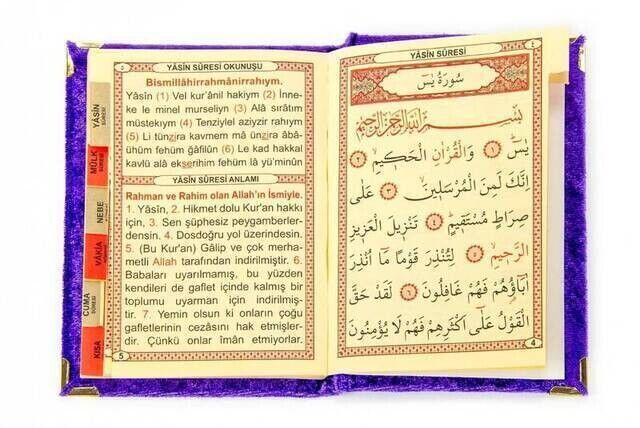 ٥
YÂSİN SÛRESİ OKUNUŞU
Bismillâhirrahmânirrahıym.
Yâsîn (1) Vel kur'ânil hakiym (2) İnne-
ke le minel murseliyn (3) Alâ sırâtım
müstekıym (4) Tenziylel aziyzir rahıym
(5) Li tünzira kavmem mâ ünzira âbâ-
ühüm fehüm ğâfilûn (6) Le kad hakkal
kavlü alâ ekserihim fehüm lâ yü'minûn
YÂSÎN SÛRESİ ANLAMI
Rahman ve Rahim olan Allah'ın İsmiyle.
1. Yâsîn, 2. Hikmet dolu Kur'an hakkı
için, 3. Sen şüphesiz peygamberler-
densin. 4. Dosdoğru yol üzerindesin.
5. (Bu Kur'an) Gâlip ve çok merha-
metli Allah tarafından indirilmiştir. 6.
Babaları uyarılmamış, bu yüzden
kendileri de gaflet içinde kalmış bir
toplumu uyarman için indirilmiş-
tir. 7. Yemin olsun ki onların çoğu
gafletlerinin cezasını hak etmişler-
dir. Çünkü onlar îmân etmiyorlar.
5
YÂSİN
SÛRESİ
MÜLK
SÛRESİ
NEBE
VÂKIA
CUMA
SÛRESİ
KISA
YÂSİN SÛRESİ
٤
سُورَةُ يٰسٓ
بِسْمِ اللّٰهِ الرَّحْمٰنِ الرَّحِيمِ
يٰسٓ ﴿١﴾ وَالْقُرْاٰنِ الْحَكِيمِ ﴿٢﴾
اِنَّكَ لَمِنَ الْمُرْسَلِينَ ﴿٣﴾ عَلٰى
صِرَاطٍ مُسْتَقِيمٍ ﴿٤﴾ تَنْزِيلَ الْعَزِيزِ
الرَّحِيمِ ﴿٥﴾ لِتُنْذِرَ قَوْمًا مَٓا اُنْذِرَ
اٰبَٓاؤُهُمْ فَهُمْ غَافِلُونَ ﴿٦﴾ لَقَدْ حَقَّ
الْقَوْلُ عَلٰٓى اَكْثَرِهِمْ فَهُمْ لَا يُؤْمِنُونَ
4